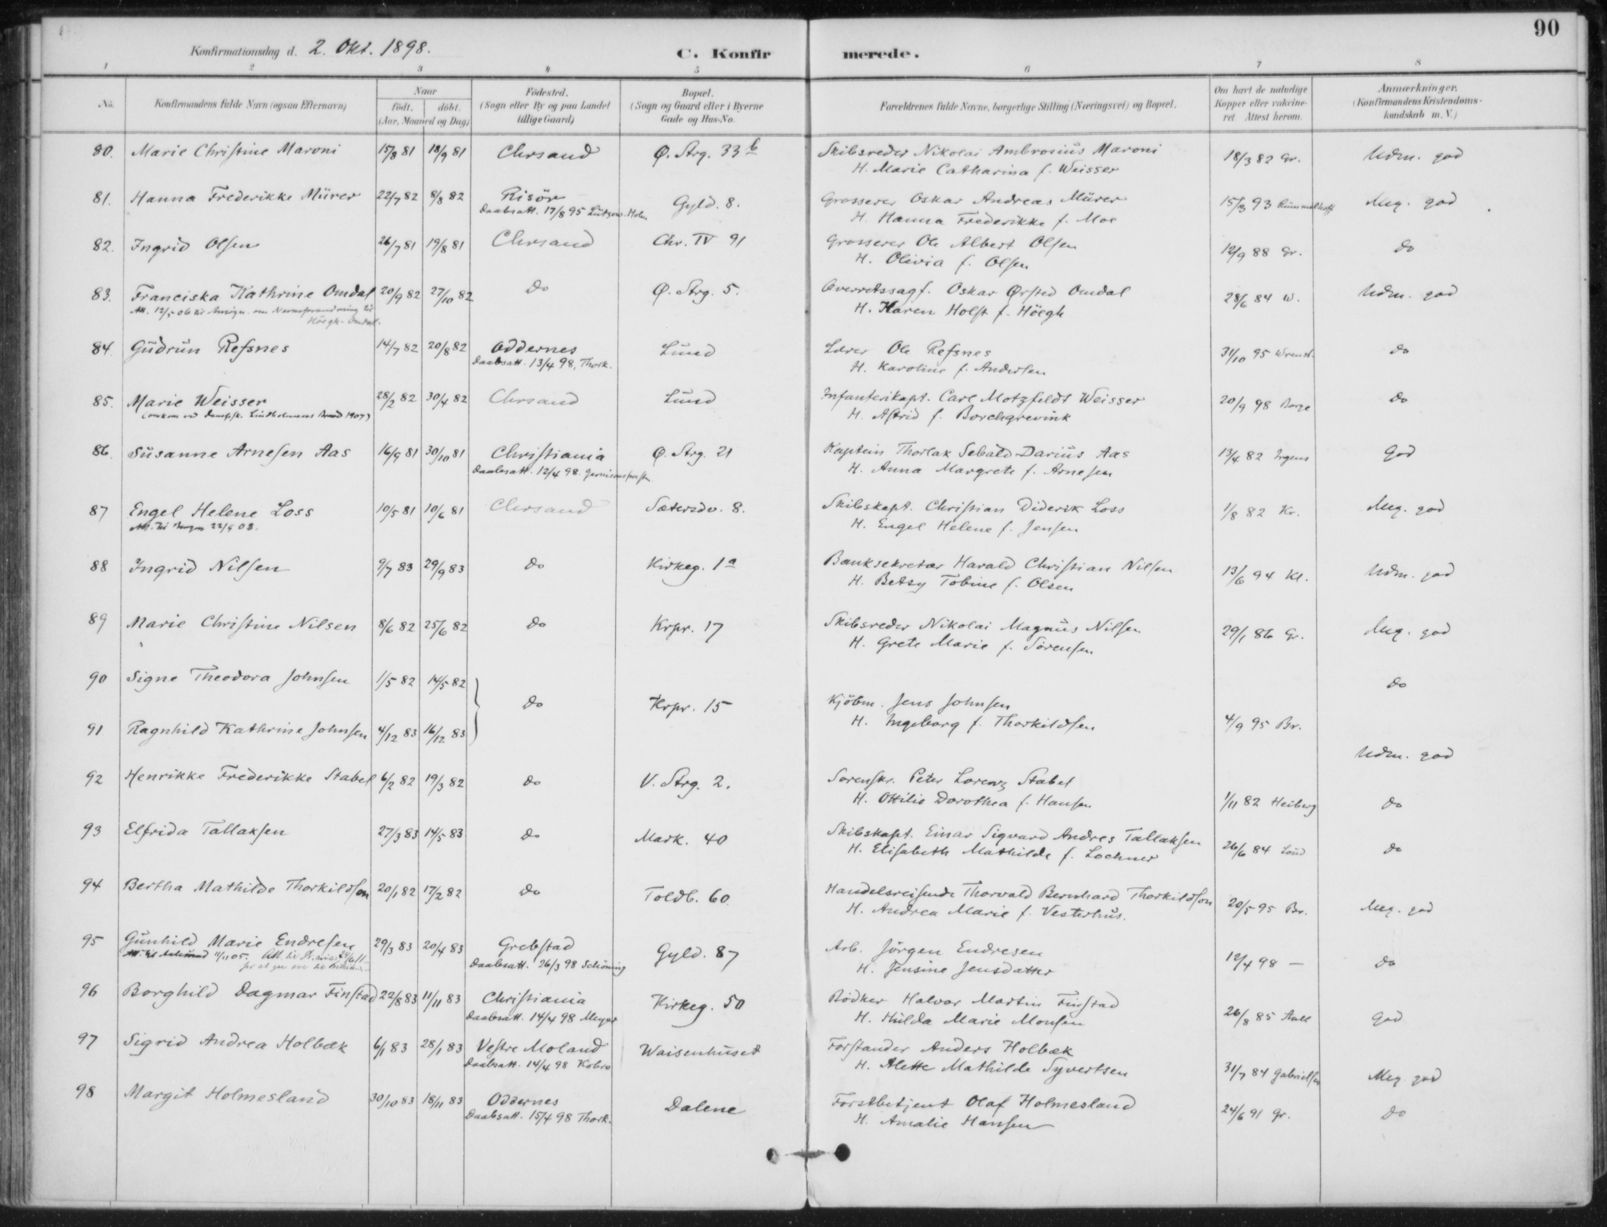 90
Konfirmationsdag d. 2. Okt. 1898. C. Konfirmerede.
1 2 3 4 5 6 7 8
No. Konfirmandens fulde Navn (ogsaa Efternavn) Naar født. døbt. (Aar, Maaned og Dag) Fødested. (Sogn eller By og paa Landet tillige Gaard) Bopæl. (Sogn og Gaard eller i Byerne Gade og Hus-No. Forældrenes fulde Navne, borgerlige Stilling (Næringsvei) og Bopæl. Om havt de naturlige Kopper eller vaccineret Attest herom. Anmærkninger. (Konfirmandens Kristendomskundskab m. V.)
80. Marie Christine Maroni 15/8 81 18/9 81 Chrsand Ø. Strg. 33 b Skibsreder Nikolai Ambrosius Maroni 18/3 82 Gr. Udm. god
H. Marie Catharina f. Weisser
81. Hanna Frederikke Mürer 22/7 82 8/8 82 Risør Gyld. 8. Grosserer Oskar Andreas Mürer 15/3 93 Meg. god
Daabsatt. 17/8 95 H. Hanna Frederikke f. Moe
82. Ingrid Olsen 26/7 81 19/8 81 Chrsand Chr. IV 91 Grosserer Ole Albert Olsen 12/9 88 Gr. do
H. Olivia f. Olsen
83. Franciska Kathrine Omdal 20/9 82 27/10 82 do Ø. Strg. 5. Overretssagf. Oskar Ørsted Omdal 28/6 84 W. Udm. god
Høegh-Omdal. H. Karen Holst f. Höegh
84. Gudrun Refsnes 14/7 82 20/8 82 Oddernes Lund Lærer Ole Refsnes 31/10 95 do
Daabsatt. 13/4 98, Thork. H. Karoline f. Andersen
85. Marie Weisser 28/2 82 30/4 82 Chrsand Lund Infanterikapt. Carl Motzfeldt Weisser 20/9 98 do
H. Astrid f. Borchgrevink
86. Susanne Arnesen Aas 16/9 81 30/10 81 Christiania Ø. Strg. 21 Kaptein Thorlak Sebald Darius Aas 13/4 82 God
Daabsatt. 12/4 98 H. Anna Margrete f. Arnesen
87 Engel Helene Loss 10/5 81 10/6 81 Chrsand Sætersdv. 8. Skibskapt. Christian Diderik Loss 1/8 82 Kr. Meg. god
Att. til Bergen 22/5 08. H. Engel Helene f. Jensen
88 Ingrid Nilsen 9/7 83 29/9 83 do Kirkeg. 1 a Banksekretær Harald Christian Nilsen 13/6 94 Kl. Udm. god
H. Betzy Tobine f. Olsen
89 Marie Christine Nilsen 8/6 82 25/6 82 do Krpr. 17 Skibsreder Nikolai Magnus Nilsen 29/1 86 Gr. Meg. god
H. Grete Marie f. Sörensen
90 Signe Theodora Johnsen 1/5 82 14/5 82 do
do Krpr. 15 Kjöbm. Jens Johnsen
91 Ragnhild Kathrine Johnsen 4/12 83 16/12 83 H. Ingeborg f. Thorkildsen 4/9 95 Br. Udm. god
92 Henrikke Frederikke Stabel 6/2 82 19/3 82 do V. Strg. 2. Sorenskr. Peter Lorenz Stabel 1/11 82 Heiberg do
H. Ottilie Dorothea f. Hansen
93 Elfrida Tallaksen 27/3 83 14/5 83 do Mark. 40 Skibskapt. Einar Sigvard Andres Tallaksen 26/6 84 do
H. Elisabeth Mathilde f. Lochner
94 Bertha Mathilde Thorkildsen 20/1 82 17/2 82 do Toldb. 60 Handelsreisende Thorvald Bernhard Thorkildsen 20/5 95 Br. Meg. god
H. Andrea Marie f. Vesterhus.
95 Gunhild Marie Endresen 29/3 83 20/4 83 Grebstad Gyld. 87 Arb. Jörgen Endresen 12/4 98 — do
Daabsatt. 26/3 98 Schöning H. Jensine Jensdatter
96 Borghild Dagmar Finstad 22/8 83 11/11 83 Christiania Kirkeg. 50 Bödker Halvor Martin Finstad 26/8 85 Aall God
Daabsatt. 14/4 98 Meyer H. Hulda Marie Monsen
97 Sigrid Andrea Holbæk 6/1 83 28/1 83 Vestre Moland Waisenhuset Forstander Anders Holbæk 31/7 84 Gabrielsen Meg. god
Daabsatt. 14/4 98 Kobro H. Alette Mathilde Syvertsen
98 Margit Holmesland 30/10 83 18/11 83 Oddernes Dalene Forstbetjent Olaf Holmesland 24/6 91 Gr. do
Daabsatt. 15/4 98 Thork. H. Amalie Hansen